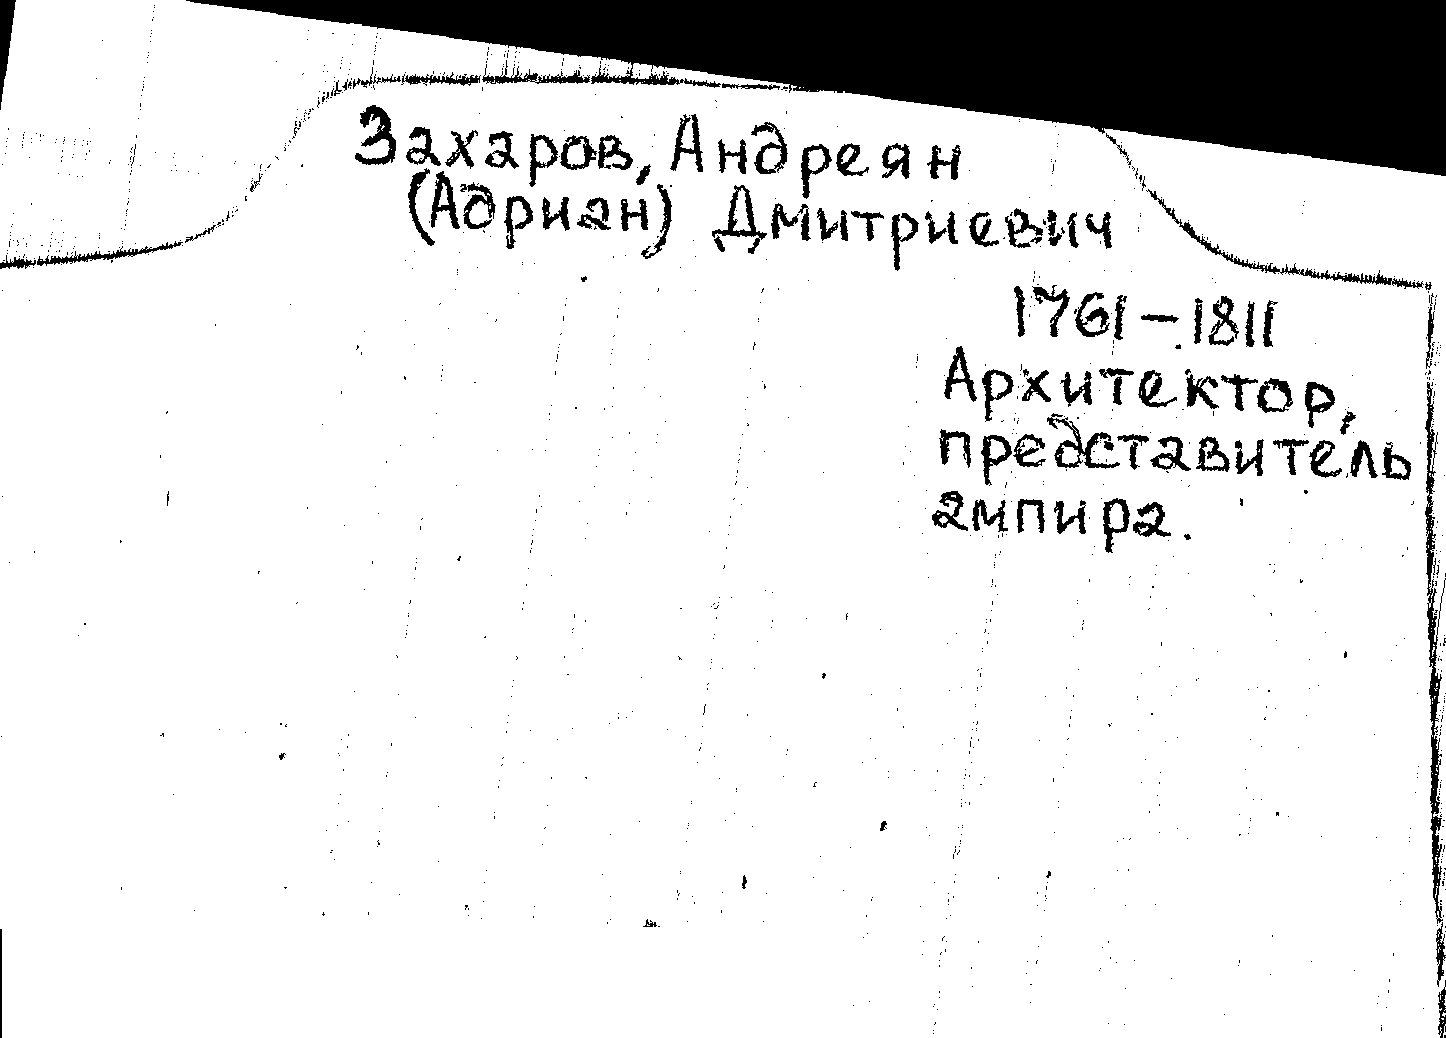 Захаров, Андреян
(Адриан) Дмитриевич
1761 – 1811
Архитектор,
представитель
ампира.